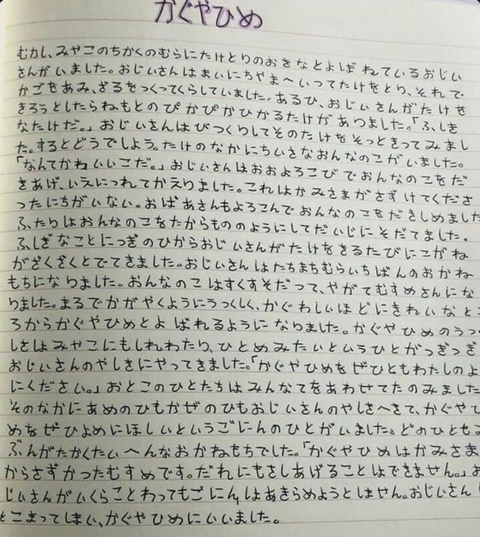 かぐやひめ
むかし、みやこのちかくのむらにたけとりのおきなとよばれているおじい
さんがいました。おじいさんはまいにちやまへいってたけをとり、それで
かごをあみ、ざるをつくってくらしていました。あるひ、おじいさんがたけを
きろうとしたらねもとのぴかぴかひかるたけがあつました。「ふしぎ
なたけだ。」おじいさんはびつくりしてそのたけをそっときってみまし
た。するとどうでしよう。たけのなかにちいさなおんなのこがいました。
「なんてかわいいこだ。」おじいさんはおおよろこびでおんなのこをだ
きあげ、いえにつれてかえりました。これはかみさまがさずけてくださ
ったにちがいない。おばあさんもよろこんでおんなのこをだきしめました
ふたりはおんなのこをたからもののようにしてだいじにそだてました。
ふしぎなことにつぎのひからおじいさんがたけをきるたびにこがね
がざくざくとでてきました。おじいさんはたちまちむらいちばんのおかね
もちになりました。おんなのこはすくすそだって、やがてむすめさんにな
りました。まるでかがやくようにうつくしく、かぐわしいほどにきれいなとこ
ろからかぐやひめとよばれるようになりました。かぐやひめのうつく
しさはみやこにもしれわたり、ひとめみたいというひとがつぎつぎ
おじいさんのやしきにやってきました。「かぐやひめをぜひともわたしのよ
にください。」おとこのひとたちはみんなてをあわせてたのみました
そのなかにあめのひもかぜのひもおじいさんのやしきへきて、かぐやひ
めをぜひよめにほしいというごにんのひとがいました。どのひともみ
ぶんがたかくたいへんなおかねもちでした。「かぐやひめはかみさま
からさずかったむすめです。だれにもさしあげることはできません。」お
じいさんがいくらことわってもごにんはあきらめようとはせん。おじいさんは
とこまってしまい、かぐやひめにいいました。